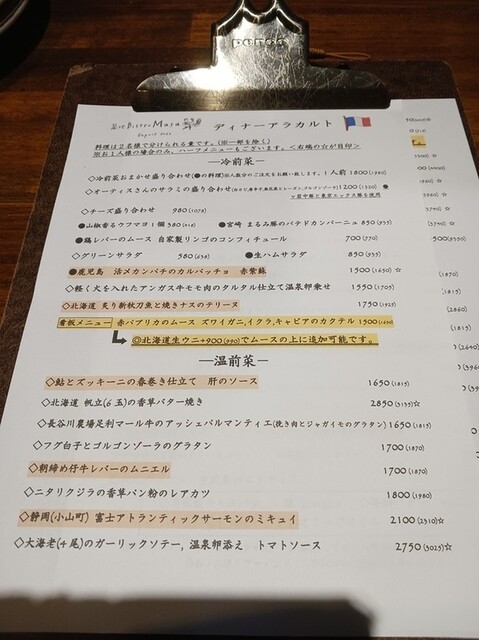 Bistro Masa
ディナーアラカルト
料理は2名様で分けられる量です。(※一部を除く)
※お1人様の場合のみ、ハーフメニューもございます。<右端の☆が目印>
―冷前菜―
◇冷前菜おまかせ盛り合わせ(●の料理)※人数分のご注文をお願い致します。1人前 1800
◇オーティスさんのサラミの盛り合わせ 1200(1320)
◇チーズ盛り合わせ 980(1078)
●山椒香るウフマヨ1個 380(418) ●宮崎 まるみ豚のパテドカンパーニュ 850(935)
●鶏レバーのムース 自家製リンゴのコンフィチュール 700(770)
◇グリーンサラダ 580(638) ●生ハムサラダ 850(935)
●鹿児島 活〆カンパチのカルパッチョ 赤紫蘇 1500(1650)☆
◇軽く火を入れたアンガス牛モモ肉のタルタル仕立て温泉卵乗せ 1550(1705)
◇北海道 炙り新秋刀魚と焼きナスのテリーヌ 1750(1925)
看板メニュー 赤パプリカのムース ズワイガニ,イクラ,キャビアのカクテル 1500(1650)
◎北海道生ウニ+900(990)でムースの上に追加可能です。
―温前菜―
◇鮎とズッキーニの春巻き仕立て 肝のソース 1650(1815)
◇北海道 帆立(6玉)の香草バター焼き 2850(3135)☆
◇長谷川農場足利マール牛のアッシェパルマンティエ(挽き肉とジャガイモのグラタン) 1650(1815)
◇フグ白子とゴルゴンゾーラのグラタン 1700(1870)
◇朝締め仔牛レバーのムニエル 1700(1870)
◇ニタリクジラの香草パン粉のレアカツ 1800(1980)
◇静岡(小山町) 富士アトランティックサーモンのミキュイ 2100(2310)☆
◇大海老(4尾)のガーリックソテー,温泉卵添え トマトソース 2750(3025)☆